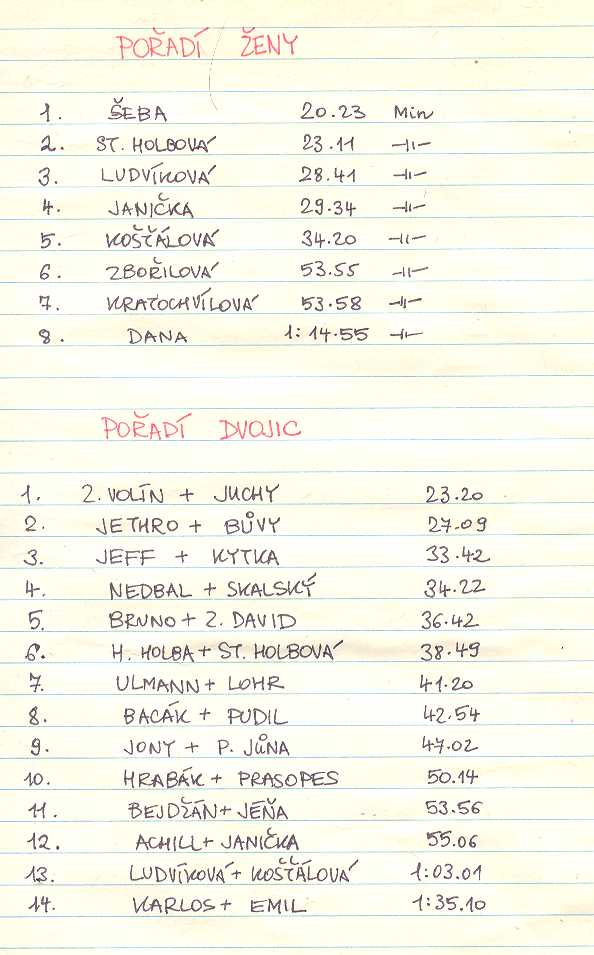 POŘADÍ ŽENY
1. ŠEBA 20.23 Min
2. ST. HOLBOVÁ 23.11 -॥-
3. LUDVÍKOVÁ 28.41 -॥-
4. JANIČKA 29.34 -॥-
5. KOŠŤÁLOVÁ 34.20 -॥-
6. ZBOŘILOVÁ 53.55 -॥-
7. KRATOCHVÍLOVÁ 53.58 -॥-
8. DANA 1:14.55 -॥-
POŘADÍ DVOJIC
1. Z. VOLÍN + JUCHY 23.20
2. JETHRO + BŮVY 27.09
3. JEFF + KYTKA 33.42
4. NEDBAL + SKALSKÝ 34.22
5. BRUNO + Z. DAVID 36.42
6. H. HOLBA + ST. HOLBOVÁ 38.49
7. ULMANN + LOHR 41.20
8. BACÁK + PUDIL 42.54
9. JONY + P. JŮNA 47.02
10. HRABÁK + PRASOPES 50.14
11. BEJDŽÁN + JEŇA 53.56
12. ACHILL + JANIČKA 55.06
13. LUDVÍKOVÁ + KOŠŤÁLOVÁ 1:03.01
14. KARLOS + EMIL 1:35.10